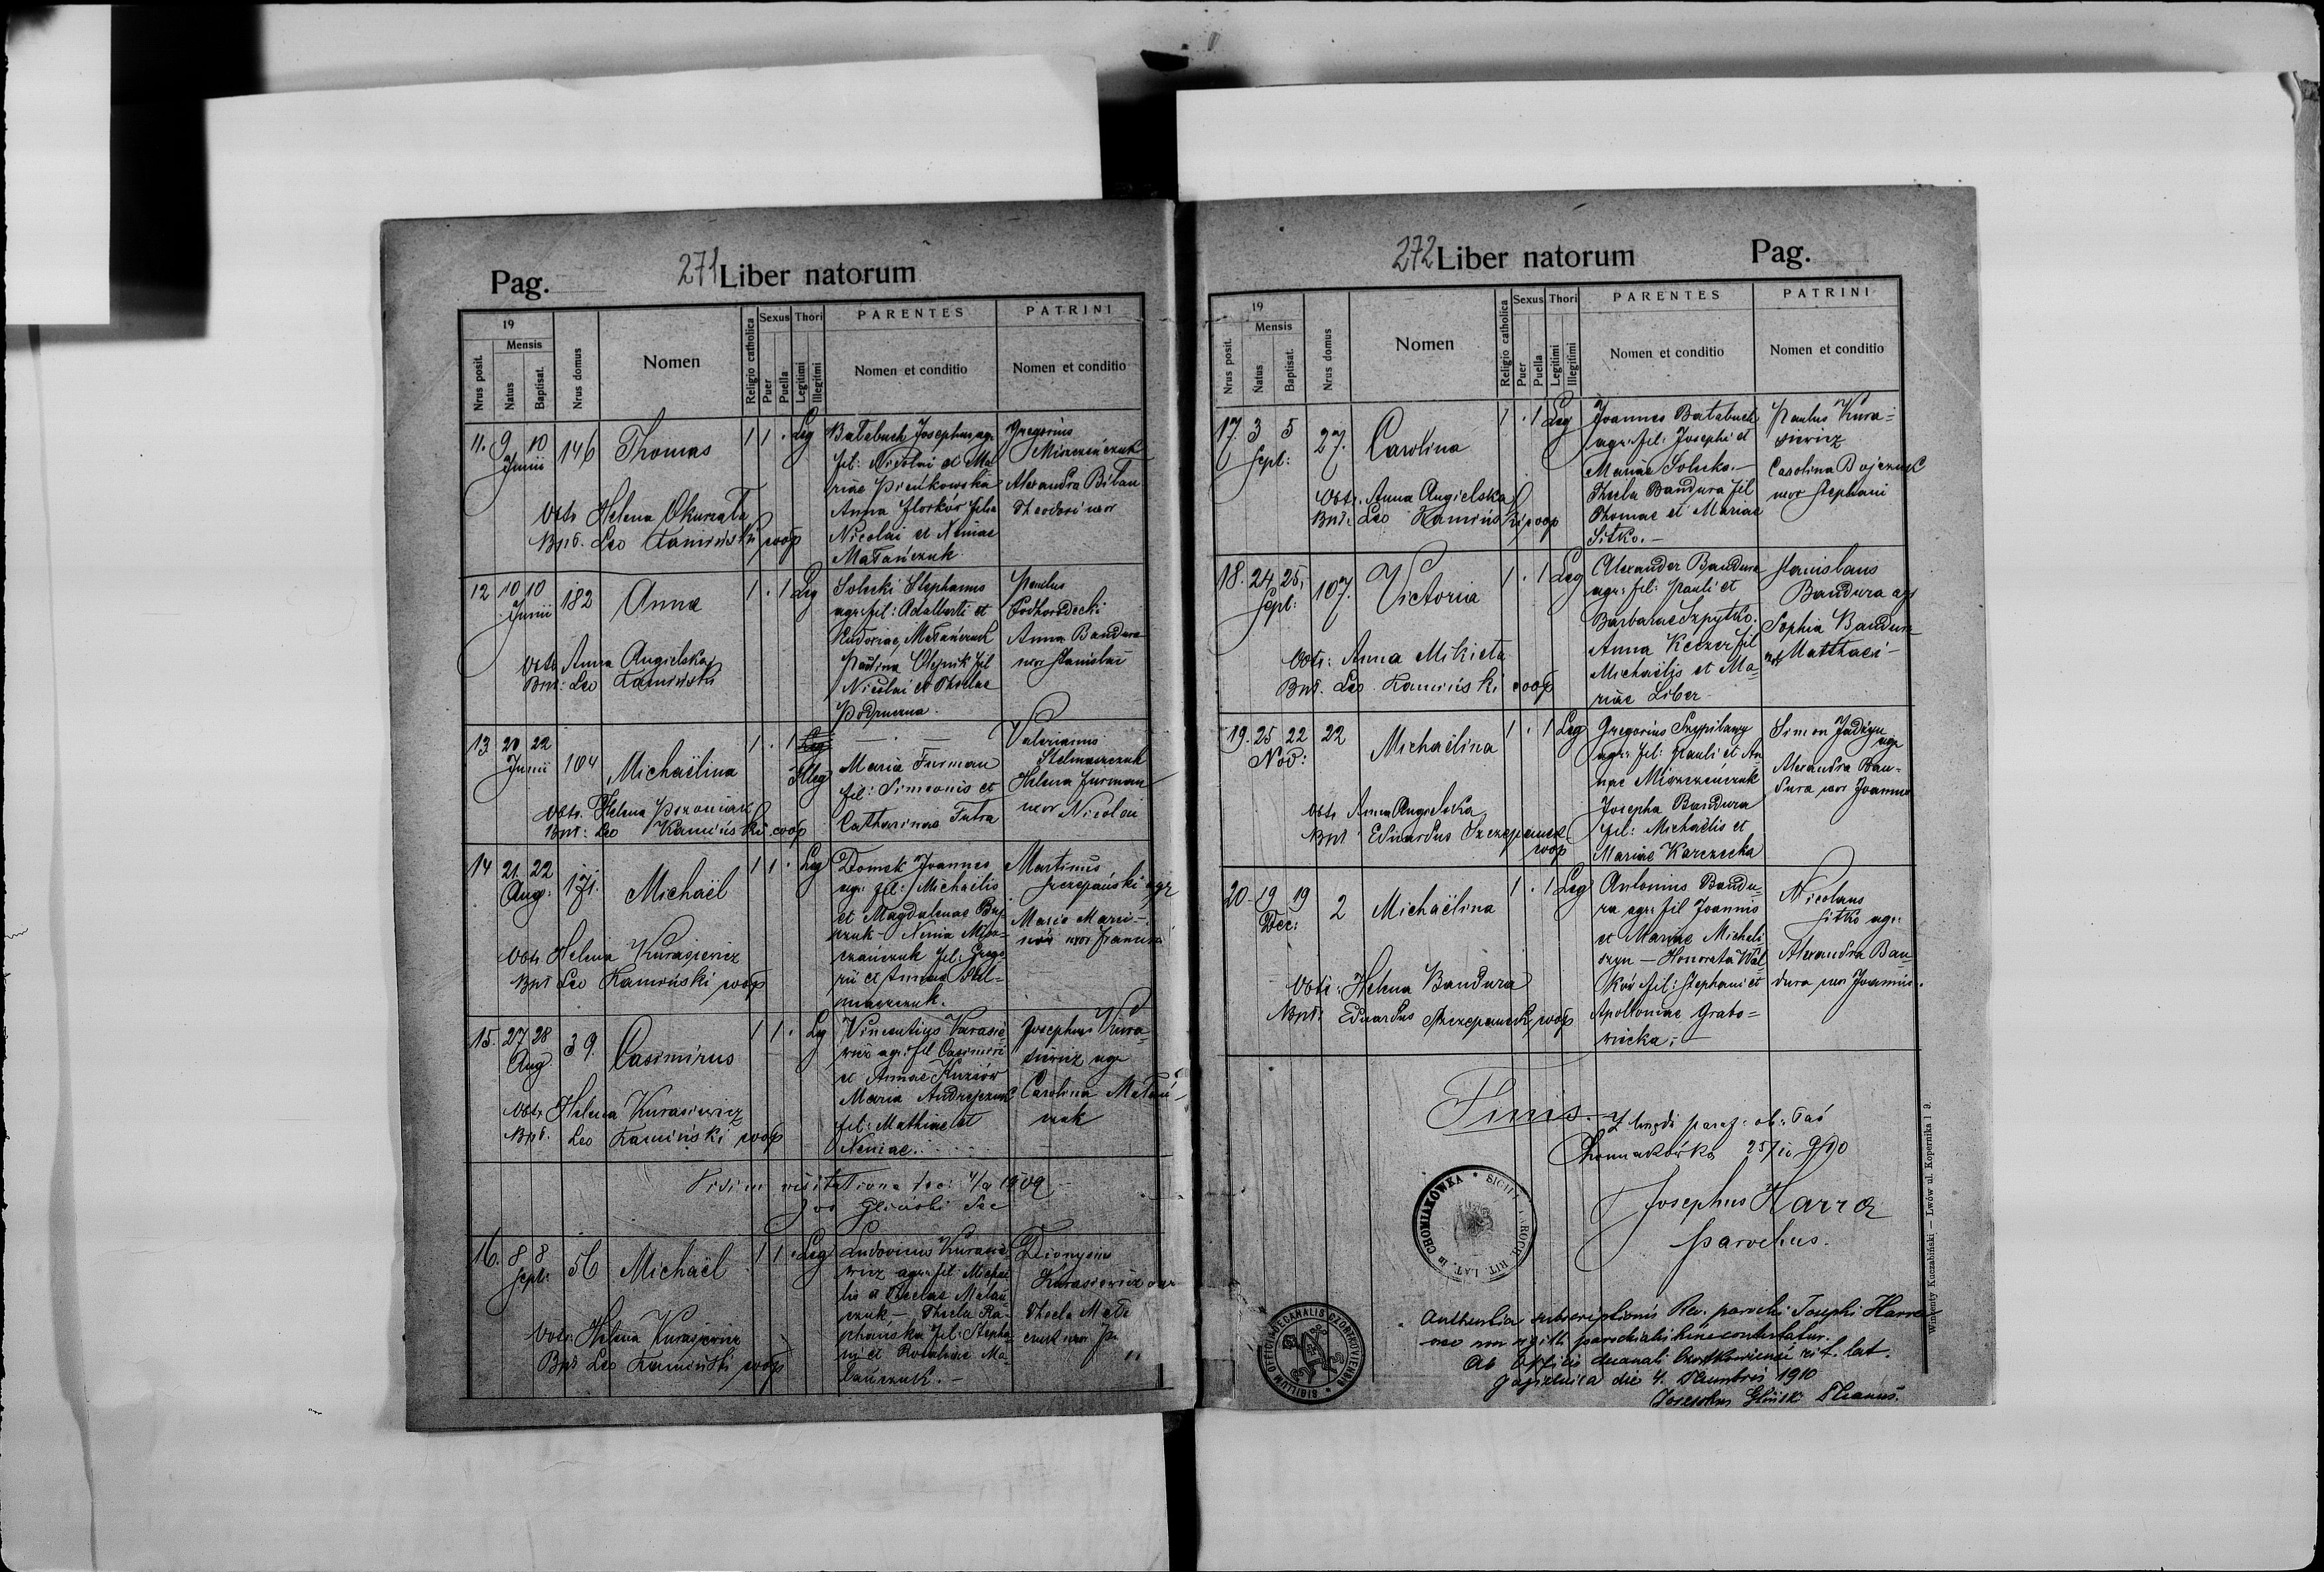 271 Liber natorum
Pag.
19
Mensis
Nrus posit.
Natus
Baptisat.
Nrus domus
Nomen
Religio catholica
Sexus
Puer
Puella
Thori
Legitimi
Illegitimi
PARENTES
Nomen et conditio
PATRINI
Nomen et conditio
11. 9 10 Junii 146 Thomas 1 1 . Leg
Obstr Helena Okurzała
Bpt. Leo Kamiński coop
Batabuch Josephus agr.
fil: Nicolai et Ma
riae Pieńkowska
Anna Florków filia
Nicolai et Annae
Matańczuk
Gregorius
Miszczańczuk
Alexandra Bilan
Theodori uxor
12 10 10 Junii 182 Anna 1 . 1 Leg
Obstr Anna Angielska
Bpt: Leo Kamiński
Soluki Stephanus
agr. fil: Adalberti et
Matańczuk
Paulina Olejnik fil
Nicolai et Theclae
Paulus
Podhorodecki
Anna Bandura
uxor Stanislai
13 20 22 Junii 104 Michaëlina 1 . 1 Leg
Illeg
Obstr. Helena
Bpt: Leo Kamiński coop
Maria Furman
fil: Simeonis et
Catharinae Futra
Valerianus
Stelmaszczuk
Helena Furman
uxor Nicolai
14 21 22 Aug: 171. Michaël 1 1 . Leg
Obstr. Helena Kurasiewicz
Bpt Leo Kamiński coop
Domek Joannes
agr. fil: Michaëlis
et Magdalenae
czuk - Xenia Misz-
czańczuk fil: Grego
rii et Annae Stel-
maszczuk.
Martinus
Szczepański agr
Maria
uxor
15. 27 28 Aug. 39. Casimirus 1 1 . Leg
Obstr Helena Kurasiewicz
Bpt. Leo Kamiński coop
Vincentius Kurasie-
wicz agr: fil Casimiri
et Annae Kuziów
Maria Andrejczuk
fil: Mathiae et
Xeniae.
Josephus Kura-
siewicz agr
Carolina Matań-
czuk
Visum in visitatione dec: 1909
Jos Gliński Dec
16. 8 8 Sept: 56 Michaël 1 1 . Leg
Obstr: Helena Kurasiewicz
Bpt Leo Kamiński coop
Ludovicus Kurasie-
wicz agr: fil Michaë
lis et Theclae Matań
czuk - Thecla Ra-
phańska fil: Stepha
ni et Rosaliae Ma-
tańczuk. -
Dionysius
Kurasiewicz agr
Thecla
czuk uxor
272 Liber natorum
Pag.
19
Mensis
Nrus posit.
Natus
Baptisat.
Nrus domus
Nomen
Religio catholica
Sexus
Puer
Puella
Thori
Legitimi
Illegitimi
PARENTES
Nomen et conditio
PATRINI
Nomen et conditio
17. 3 5 Sept: 27. Carolina 1 . 1 Leg
Obstr. Anna Angielska
Bpt: Leo Kamiński coop
Joannes Batabuch
agr: fil: Josephi et
Mariae Soluko. -
Thecla Bandura fil
Thomae et Mariae
Sitko. -
Paulus Kura-
siewicz
Carolina Bojczuk
uxor Stephani
18. 24 25. Sept: 107. Victoria 1 . 1 Leg
Obstr: Anna Mikieta
Bpt. Leo Kamiński coop
Alexander Bandura
agr: fil: Pauli et
Barbarae Szpytko.
Anna Keczer fil
Michaëlis et Ma-
riae Liber
Stanislaus
Bandura agr
Sophia Bandura
uxor Matthaei -
19. 25 22 Nov: 22 Michaëlina 1 . 1 Leg
Obstr Anna Angielska
Bpt Eduardus Szczepanek
coop
Gregorius
agr: fil: Pauli et An
nae Miszczańczuk
Josepha Bandura
fil: Michaëlis et
Mariae Karzecka
Simon agr
Alexandra Ban-
dura uxor Joannis
20 - 19 19 Dec: 2 Michaëlina 1 . 1 Leg
Obstr: Helena Bandura
Bpt: Eduardus Szczepanek coop
Antonius Bandu-
ra agr: fil Joannis
et Mariae Micheli
szyn - Honorata
fil: Stephani et
Apolloniae Grabo-
wiecka; -
Nicolaus
Sitko agr:
Alexandra Ban-
dura uxor Joannis.
Finis. -
Z urzędu paraf: ob: łać
Chomiakówka 25/II 910
Josephus Harra
parochus.
CHOMIAKÓWKA * SIGILL. PAROCH. RIT. LAT. in
SIGILLUM OFFICII DECANALIS CZORTKOVIENSIS *
Authentia subscriptionis Rev. parochi Josephi Harra
nec non sigilli parochialis hisce contestatur.
Ab Officio decanali Czortkoviensi rit. lat.
Jagielnica die 4. 1910
Josephus Gliński Decanus.
Wincenty Kuczabiński — Lwów ul. Kopernika 19.